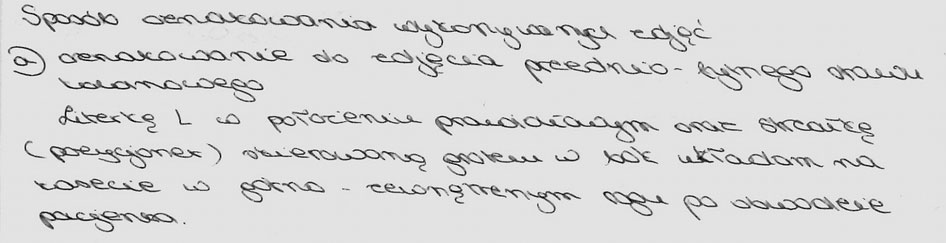 Sposób oznakowania wykonywanych zdjęć
a) oznakowanie do zdjęcia przednio-tylnego stawu
kolanowego
Literkę L w położeniu prawdziwym oraz strzałkę
(pozycjoner) skierowaną grotem w bok układam na
kasecie w górno-zewnętrznym rogu po obwodzie
pacjenta.